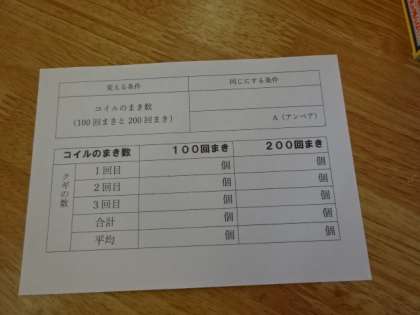 変える条件 同じにする条件
コイルのまき数
(100回まきと200回まき)
A(アンペア)
コイルのまき数 100回まき 200回まき
クギの数
1回目 個 個
2回目 個 個
3回目 個 個
合計 個 個
平均 個 個